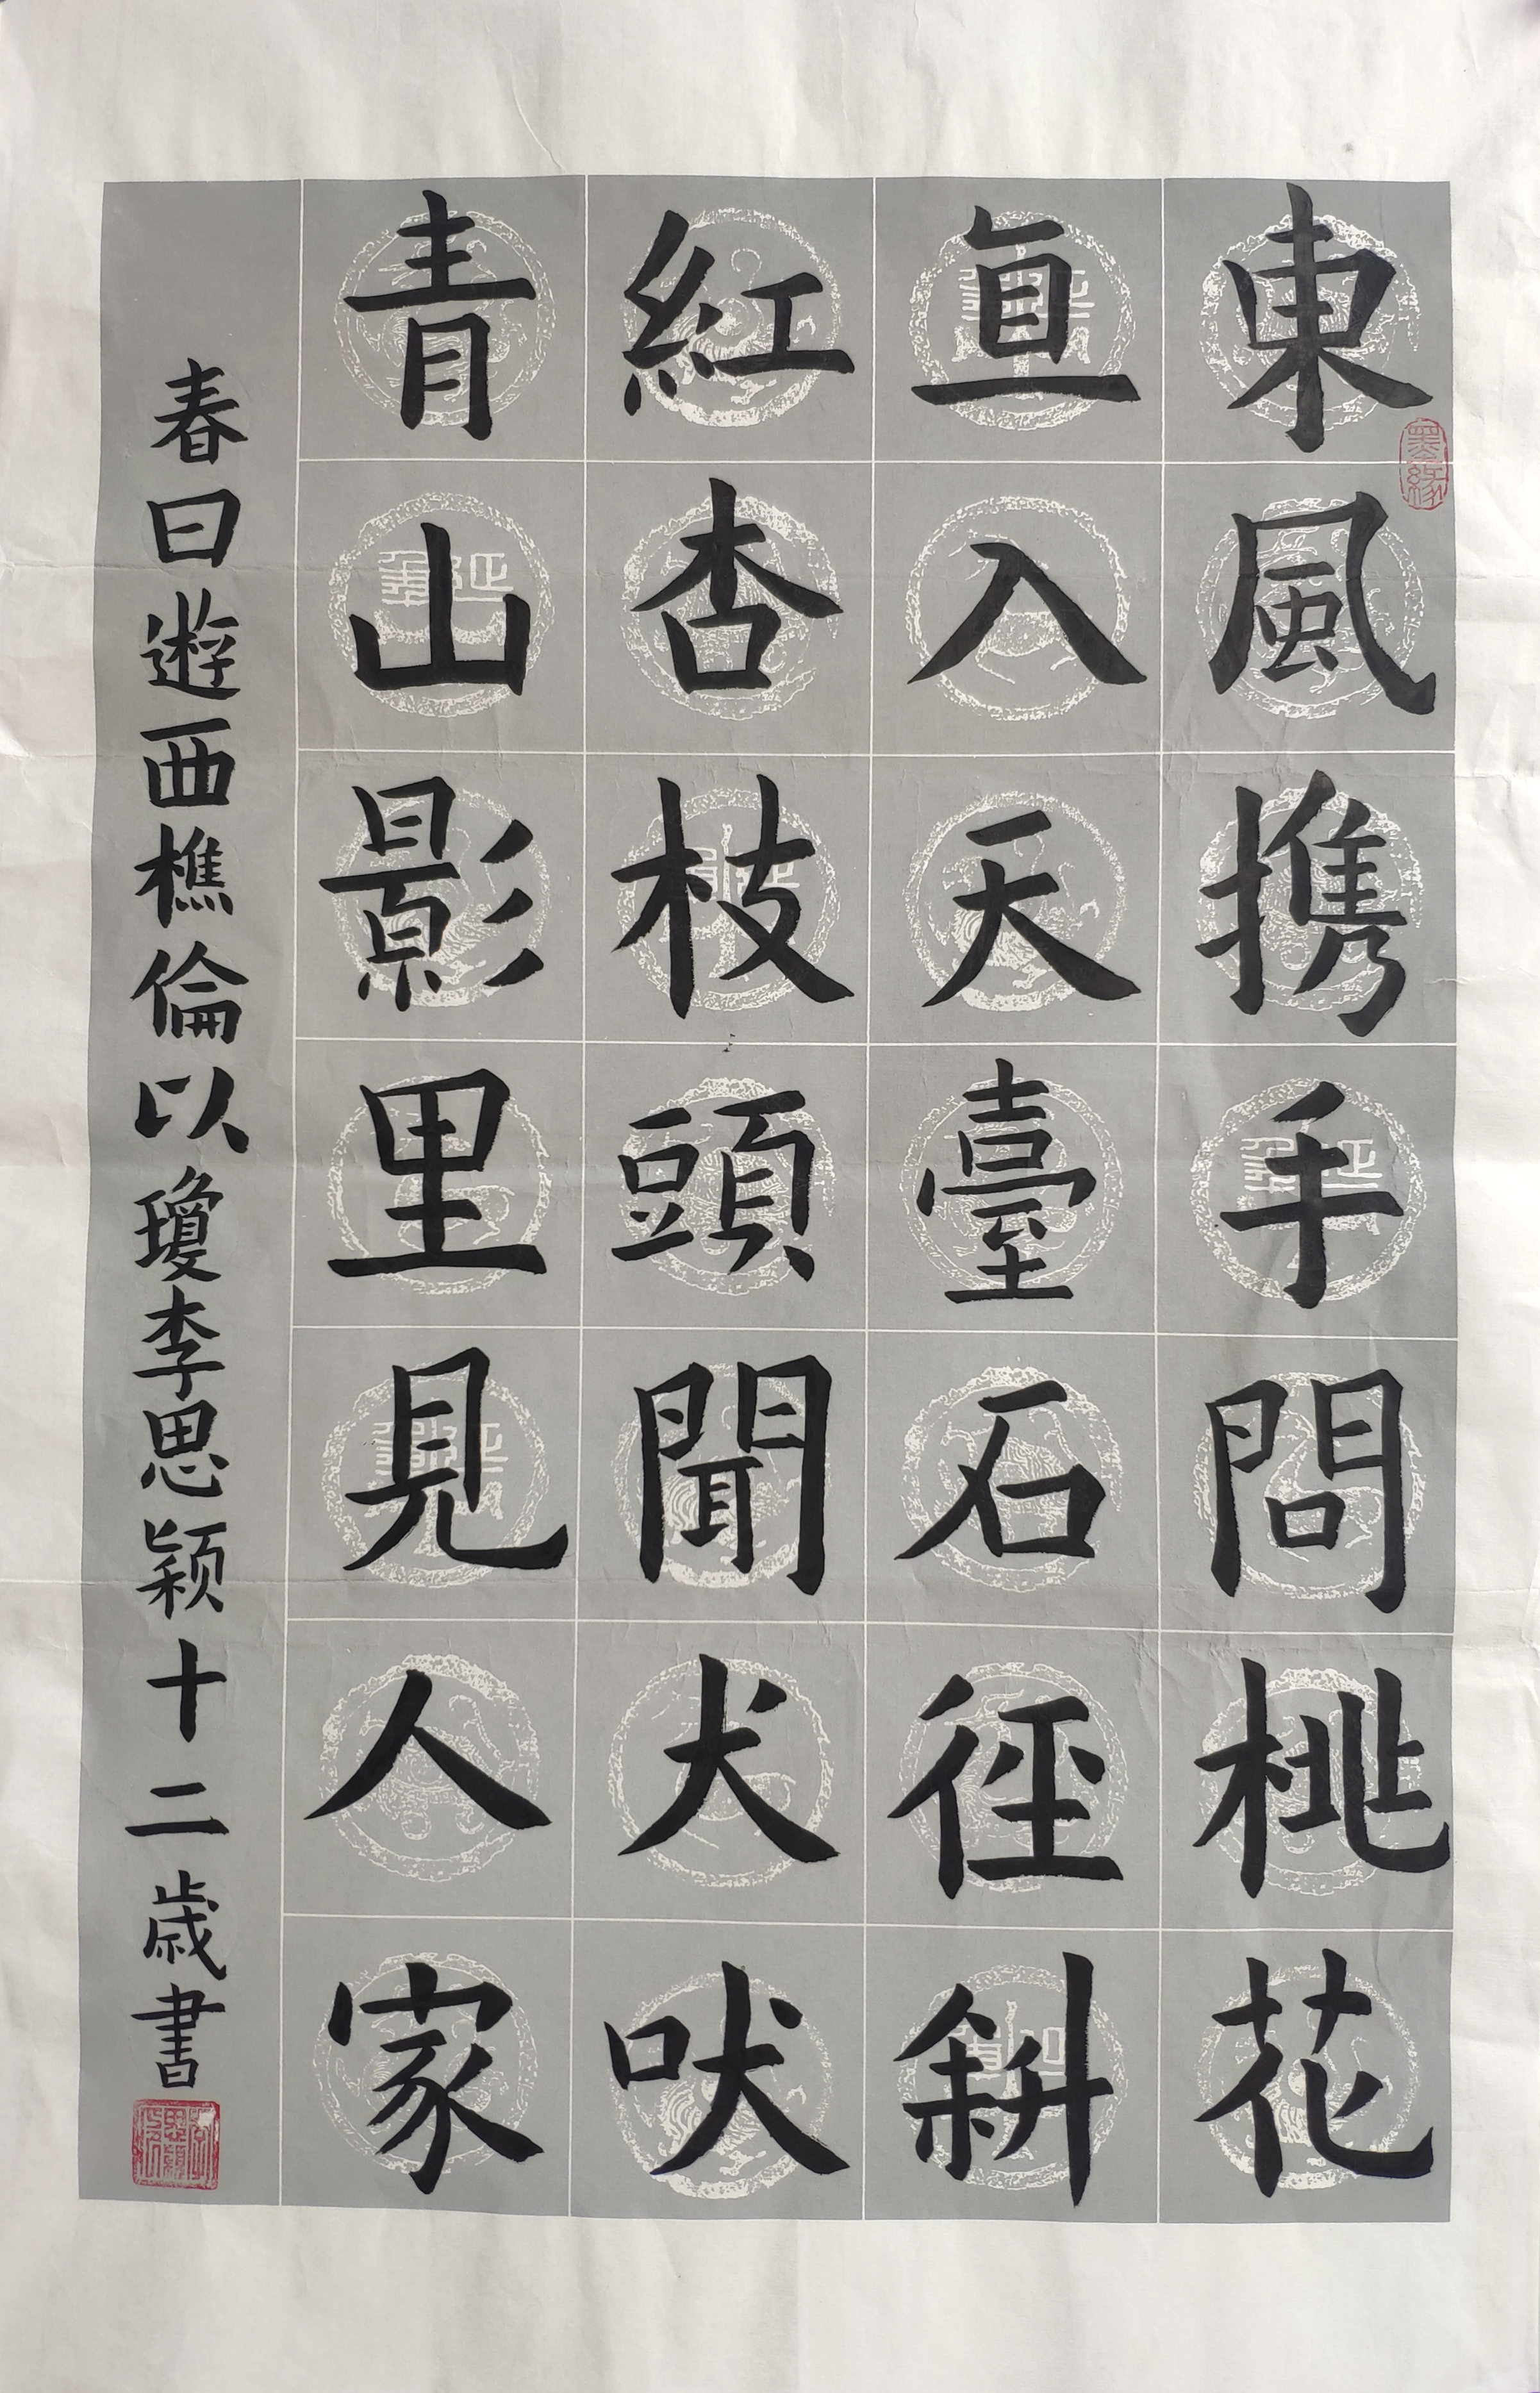 東風携手問桃花
直入天臺石徑斜
紅杏枝頭聞犬吠
青山影里見人家
春日遊西樵倫以瓊李思颖十二歳書
墨緣